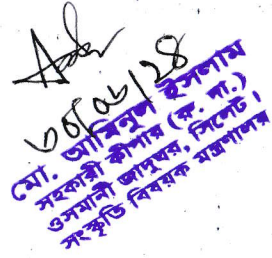 ৩০/০৬/২৪
মো. আমিনুল ইসলাম
সহকারী কীপার (র. শা.)
ওসমানী জাদুঘর, সিলেট।
সংস্কৃতি বিষয়ক মন্ত্রণালয়